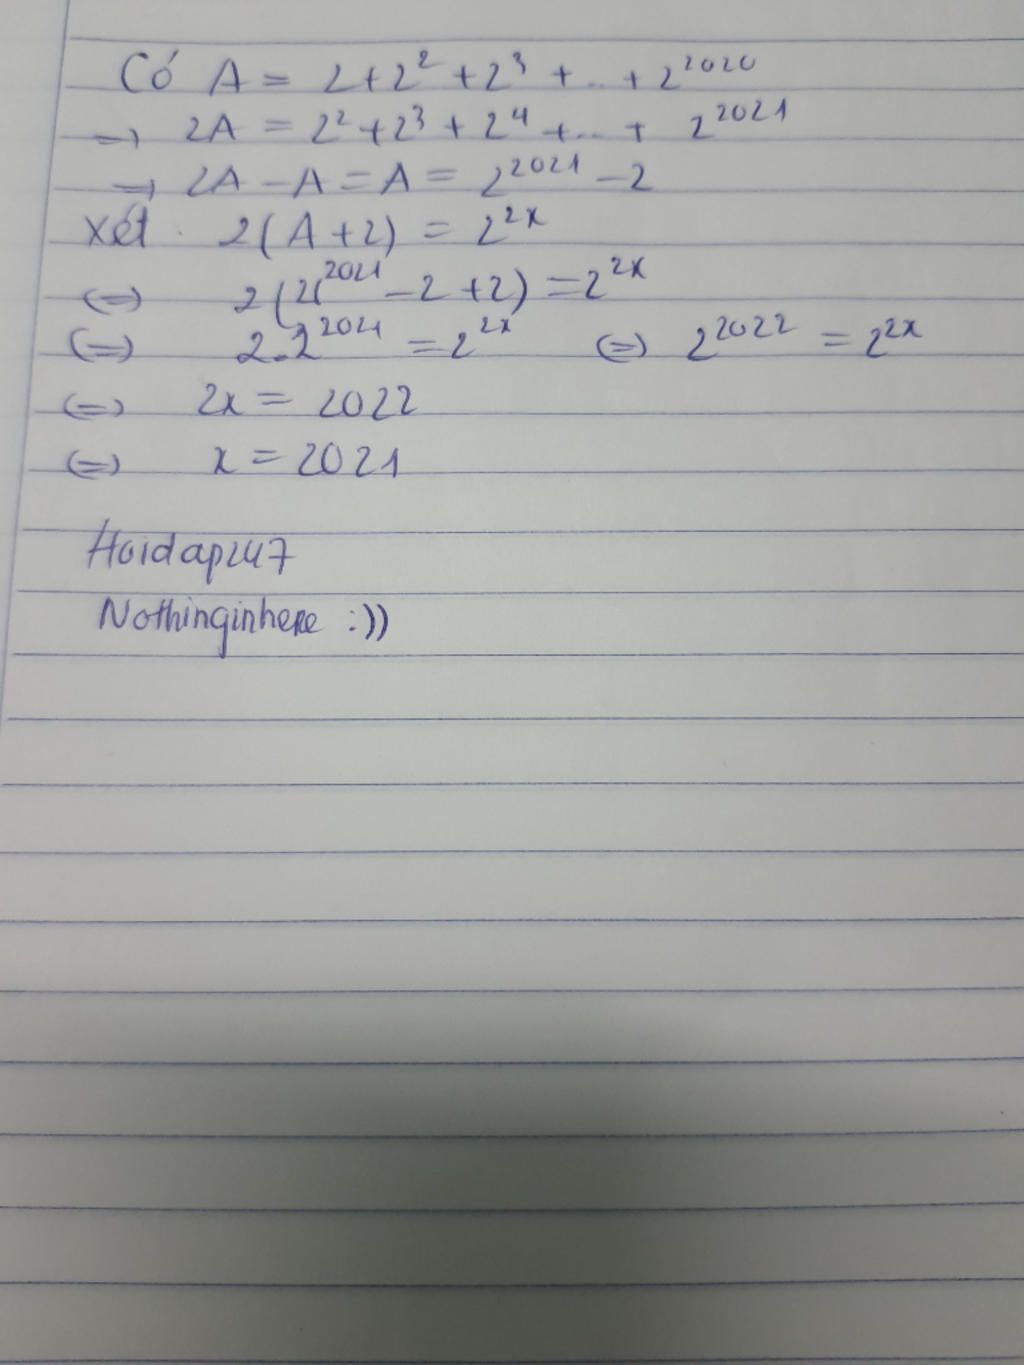 Có A = 2 + 2² + 2³ + ... + 2²⁰²⁰
=> 2A = 2² + 2³ + 2⁴ + ... + 2²⁰²¹
=> 2A - A = A = 2²⁰²¹ - 2
Xét: 2(A + 2) = 2²ˣ
(=) 2(2²⁰²¹ - 2 + 2) = 2²ˣ
(=) 2.2²⁰²¹ = 2²ˣ (=) 2²⁰²² = 2²ˣ
(=) 2x = 2022
(=) x = 2021
Hoidap247
Nothinginhere :))